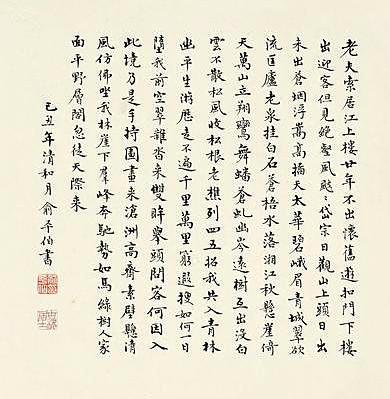 老夫索居江上樓廿年不出懷舊遊扣門下樓
出迎客但見絕壑風颼〻岱宗日觀山上頭日出
未出蒼烟浮嵩高插天太華碧峨眉青城翠欲
流匡廬老泉挂白石蒼梧水落湘江秋懸崖倚
天萬山立翔鸞舞蟠蒼虬幽岑遠樹互出沒白
雲不散松風收松根老樵列四五招我共入青林
幽平生游歷走不遍千里萬里窮遐搜如何一日
墮我前空翠雜沓來雙眸舉頭問客何因入
此境乃是手持圖畫來滄洲高齋素壁懸清
風仿佛坐我林崖下群峰奔馳勢如馬綠樹人家
面平野層閣忽從天際來
己丑年清和月俞平伯書